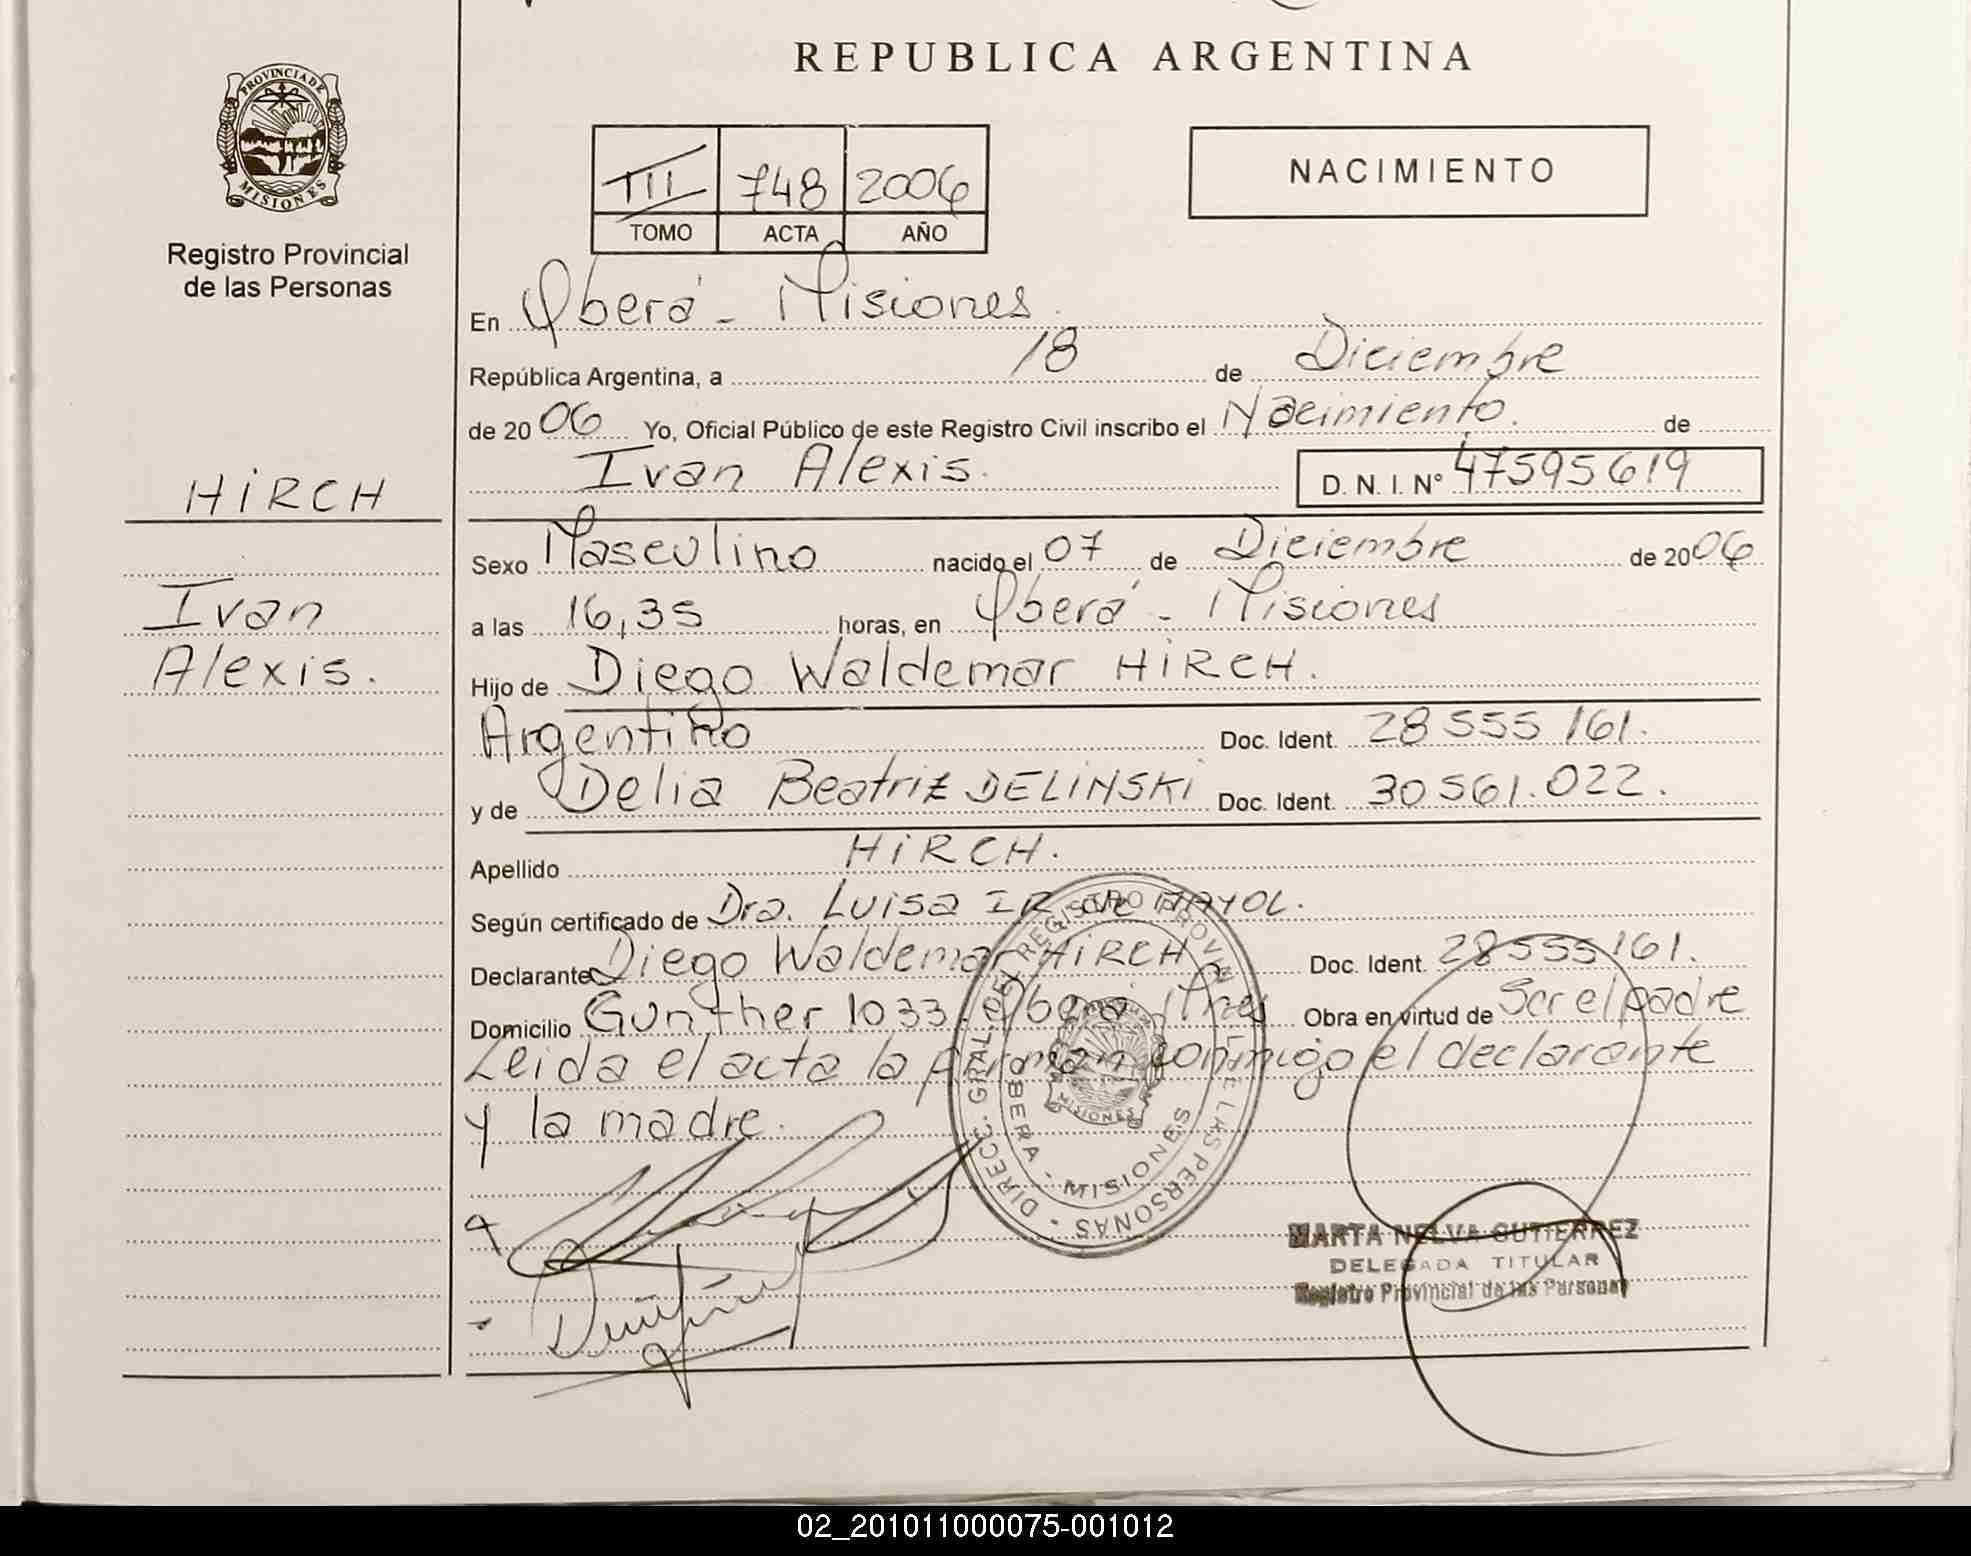 REPUBLICA ARGENTINA
PROVINCIA DE MISIONES
Registro Provincial
de las Personas
III 748 2006
TOMO ACTA AÑO
NACIMIENTO
En Oberá - Misiones
República Argentina, a 18 de Diciembre
de 2006 Yo, Oficial Público de este Registro Civil inscribo el Nacimiento. de
Ivan Alexis. D. N. I. N° 47595619
HiRCH
Ivan
Alexis.
Sexo Masculino nacido el 07 de Diciembre de 2006
a las 16,35 horas, en Oberá - Misiones
Hijo de Diego Waldemar HiRCH.
Argentino Doc. Ident. 28555161.
y de Delia Beatriz DELINSKi Doc. Ident. 30561.022.
Apellido HiRCH.
Según certificado de Dra. Luisa IR de MAYOL.
Declarante Diego Waldemar HiRCH Doc. Ident. 28555161.
Domicilio Gunther 1033. Oberá Mnes Obra en virtud de Ser el padre
Leida el acta la firman conmigo el declarante
y la madre.
DIRECC. GRAL. DEL REGISTRO PROVIN. DE LAS PERSONAS
OBERA - MISIONES
MISIONES
MARTA NELVA GUTIERREZ
DELEGADA TITULAR
Registro Provincial de las Personas
02_201011000075-001012